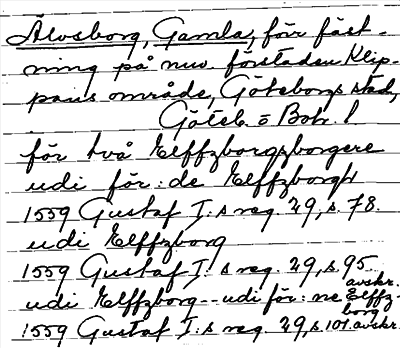 Älvsborg, Gamla, förr fäst-
ning på nuv. förstaden Klip-
pans område, Göteborgs stad,
Göteb. o Boh. l.
för två Elffzborgzborgere
udi för: de Elffzborgh
1559 Gustaf I:s reg. 29, s. 78.
udi Elffzborg
1559 Gustaf I:s reg. 29, s. 95. avskr.
udi Elffzborg -- udi för: ne Elffz-
borg
1559 Gustaf I:s reg. 29, s. 101. avskr.